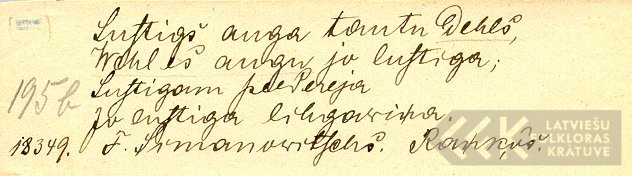 Luſtigs auga tautu Dehls,
Wehl es augu jo luſtiga;
195b
Luſtigam peedereja
Jo luſtiga lihgawiṅa.
18349. F. Simanowitſchs. Rankṿs.
LATVIEŠU
FOLKLORAS
KRĀTUVE